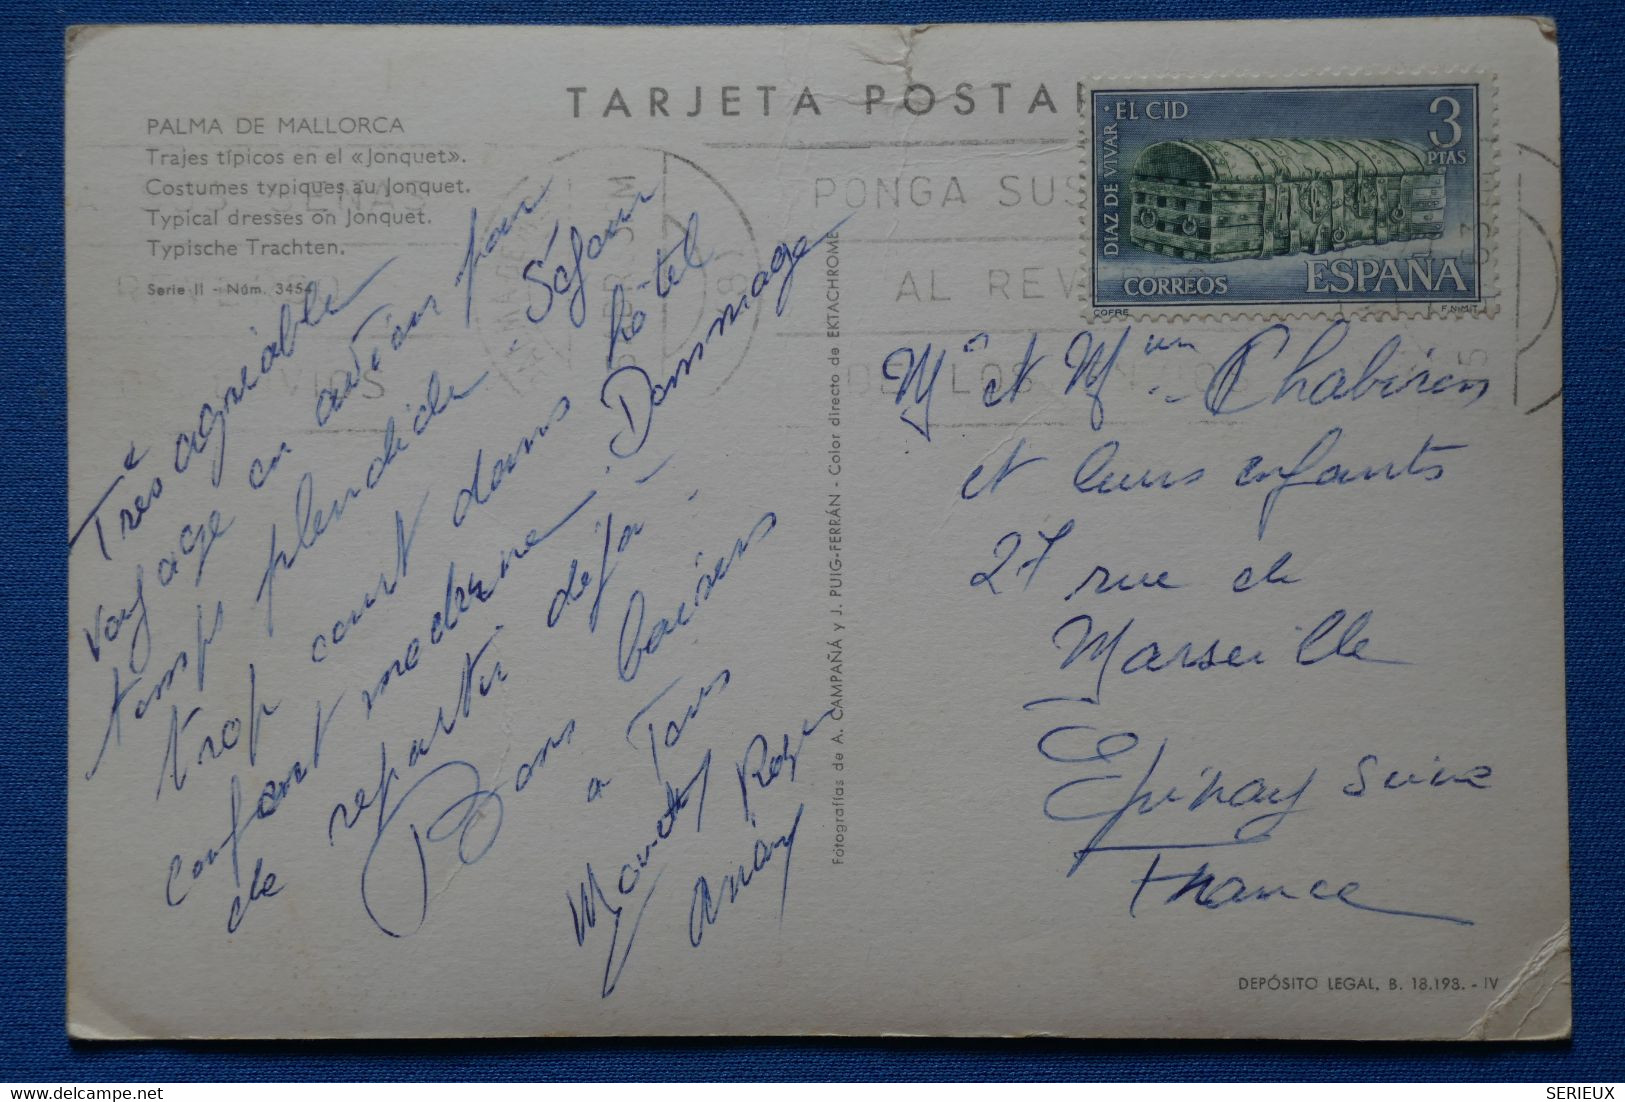 TARJETA POSTAL
PALMA DE MALLORCA
Trajes típicos en el «Jonquet».
Costumes typiques au Jonquet.
Typical dresses on Jonquet.
Typische Trachten.
Serie II - Núm. 3454
Très agréable
voyage en avion pour
temps splendide. Séjour
trop court dans hôtel
confort moderne. Dommage
de repartir déjà -
Bons baisers
a Tous
Roger
Fotografías de A. CAMPAÑÁ y J. PUIG-FERRÁN - Color directo de EKTACHROME
PONGA SUS
AL REV
DE LOS
DIAZ DE VIVAR · EL CID
3
PTAS
CORREOS ESPAÑA
COFRE F.N.M.T.
Mr et Mme Chabiron
et leurs enfants
27 rue de
Marseille
Epinay Seine
France
DEPÓSITO LEGAL, B. 18.198. - IV
SERIEUX